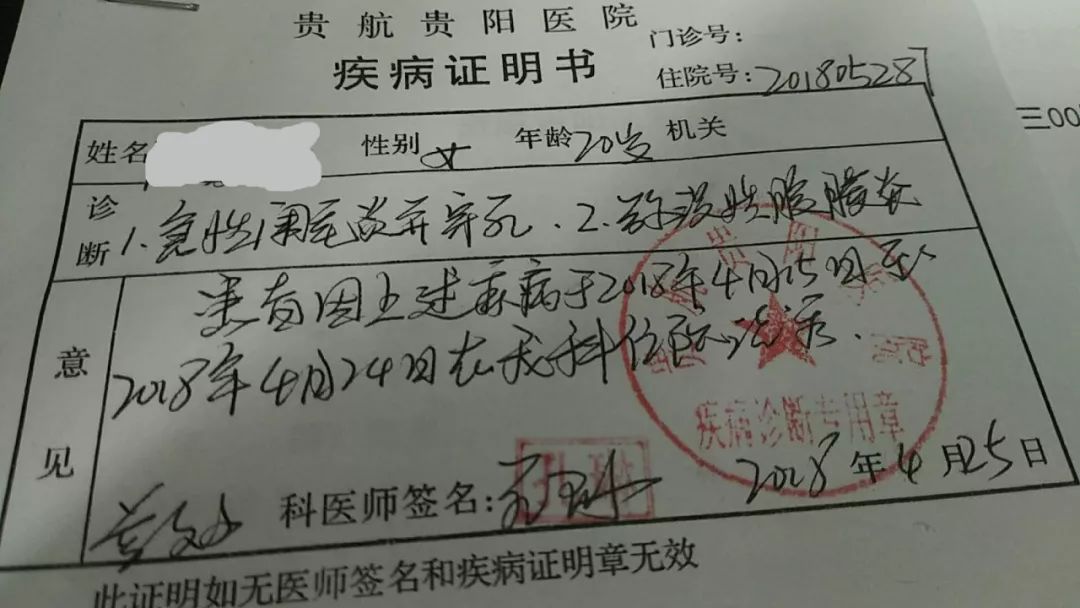 贵航贵阳医院
疾病证明书
门诊号:
住院号:20180528
姓名 性别 女 年龄 20岁 机关
诊断 1.急性阑尾炎并穿孔. 2.弥漫性腹膜炎
意见 患者因上述疾病于2018年4月15日至
2018年4月24日在我科住院治疗.
科医师签名:
2018年4月25日
贵阳医院
疾病诊断专用章
此证明如无医师签名和疾病证明章无效
三00